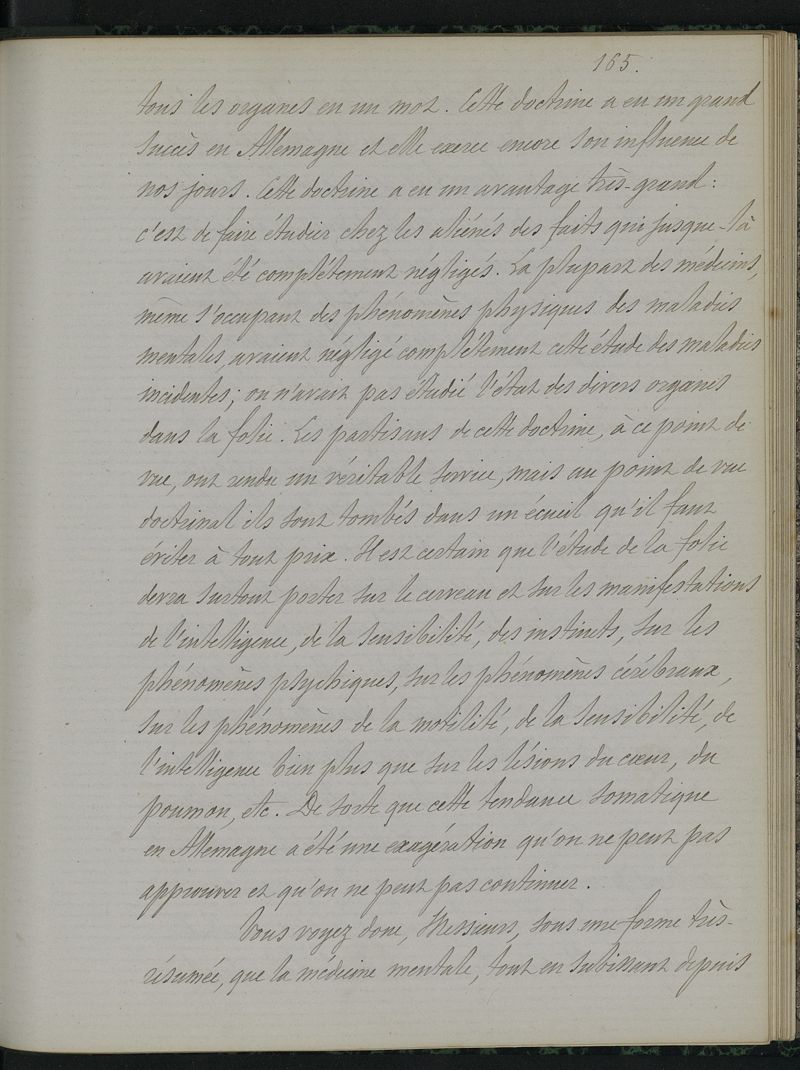 165.
tous les organes en un mot. Cette doctrine a eu un grand
succès en Allemagne et elle exerce encore son influence de
nos jours. Cette doctrine a eu un avantage très-grand :
c'est de faire étudier chez les aliénés des faits qui jusque-là
avaient été complètement négligés. La plupart des médecins,
même s'occupant des phénomènes physiques des maladies
mentales, avaient négligé complètement cette étude des maladies
incidentes ; on n'avait pas étudié l'état des divers organes
dans la folie. Les partisans de cette doctrine, à ce point de
vue, ont rendu un véritable service, mais au point de vue
doctrinal ils sont tombés dans un écueil qu'il faut
éviter à tout prix. Il est certain que l'étude de la folie
devra surtout porter sur le cerveau et sur les manifestations
de l'intelligence, de la sensibilité, des instincts, sur les
phénomènes psychiques, sur les phénomènes cérébraux,
sur les phénomènes de la motilité, de la sensibilité, de
l'intelligence bien plus que sur les lésions du cœur, du
poumon, etc. De sorte que cette tendance somatique
en Allemagne a été une exagération qu'on ne peut pas
approuver et qu'on ne peut pas continuer.
Vous voyez donc, Messieurs, sous une forme très-
résumée, que la médecine mentale, tout en subissant depuis